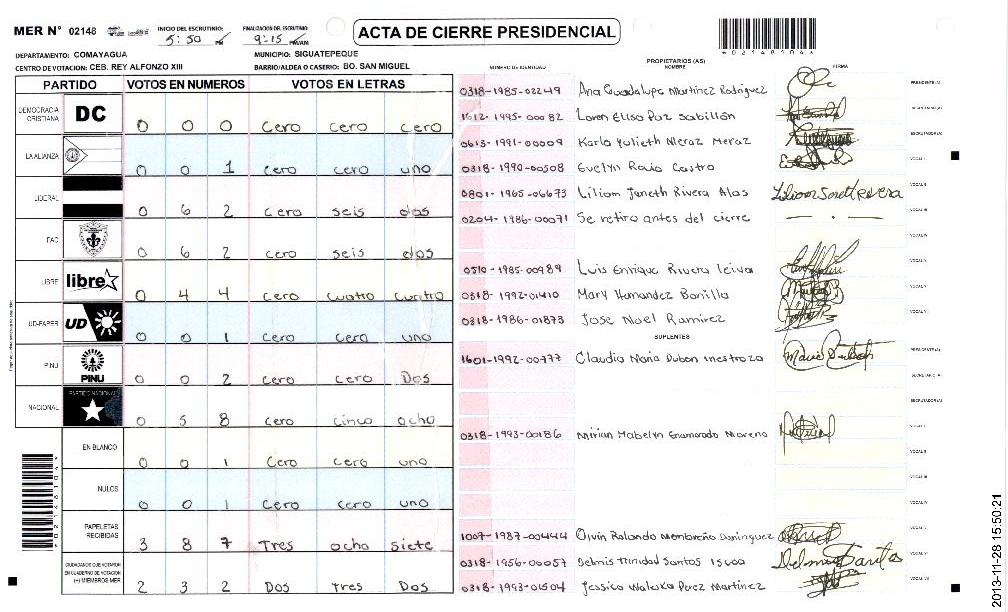 MER N° 02148
INICIO DEL ESCRUTINIO:
5:50 PM
FINALIZACION DEL ESCRUTINIO
9:15 PM/AM
ACTA DE CIERRE PRESIDENCIAL
02148104
DEPARTAMENTO: COMAYAGUA
MUNICIPIO: SIGUATEPEQUE
CENTRO DE VOTACION: CEB. REY ALFONZO XIII
BARRIO/ALDEA O CASERIO: BO. SAN MIGUEL
PARTIDO VOTOS EN NUMEROS VOTOS EN LETRAS
DEMOCRACIA CRISTIANA DC 0 0 0 cero cero cero
LA ALIANZA 0 0 1 cero cero uno
LIBERAL 0 6 2 cero seis dos
PAC 0 6 2 cero seis dos
LIBRE libre 0 4 4 cero cuatro cuatro
UD-FAPER UD 0 0 1 cero cero uno
PINU PINU 0 0 2 cero cero Dos
NACIONAL PARTIDO NACIONAL 0 5 8 cero cinco ocho
EN BLANCO 0 0 1 cero cero uno
NULOS 0 0 1 cero cero uno
PAPELETAS RECIBIDAS 3 8 7 Tres ocho siete
CIUDADANOS QUE VOTARON EN CUADERNO DE VOTACION (+) MIEMBROS MER 2 3 2 Dos Tres Dos
NUMERO DE IDENTIDAD PROPIETARIOS (AS) NOMBRE FIRMA
0318-1985-02249 Ana Guadalupe Martinez Rodriguez PRESIDENTE(A)
1612-1995-00082 Loren Elisa Paz Sabillon
0613-1991-00009 Karla Yulieth Meraz Meraz ESCRUTADOR(A)
0318-1990-00508 Evelyn Rocio Castro VOCAL I
0801-1965-06673 Lilian Janeth Rivera Alas VOCAL II
0204-1986-00071 Se retiro antes del cierre VOCAL III
VOCAL IV
0510-1985-00989 Luis Enrique Rivera leiva VOCAL V
0318-1992-01410 Mary Hernandez Bonilla
0318-1986-01873 Jose Noel Ramirez
SUPLENTES
1601-1992-00777 Claudia Maria Dubon inestroza PRESIDENTE(A)
SECRETARIO(A)
ESCRUTADOR(A)
0318-1993-00186 Mirian Mabelyn Enamorado Moreno
VOCAL II
VOCAL III
VOCAL IV
1007-1987-00444 Olvin Rolando Membreño Dominguez
0318-1956-00057 Belmis Trinidad Santos
0318-1993-01504 Jessica Waleska Perez Martinez
2013-11-28 15:50:21